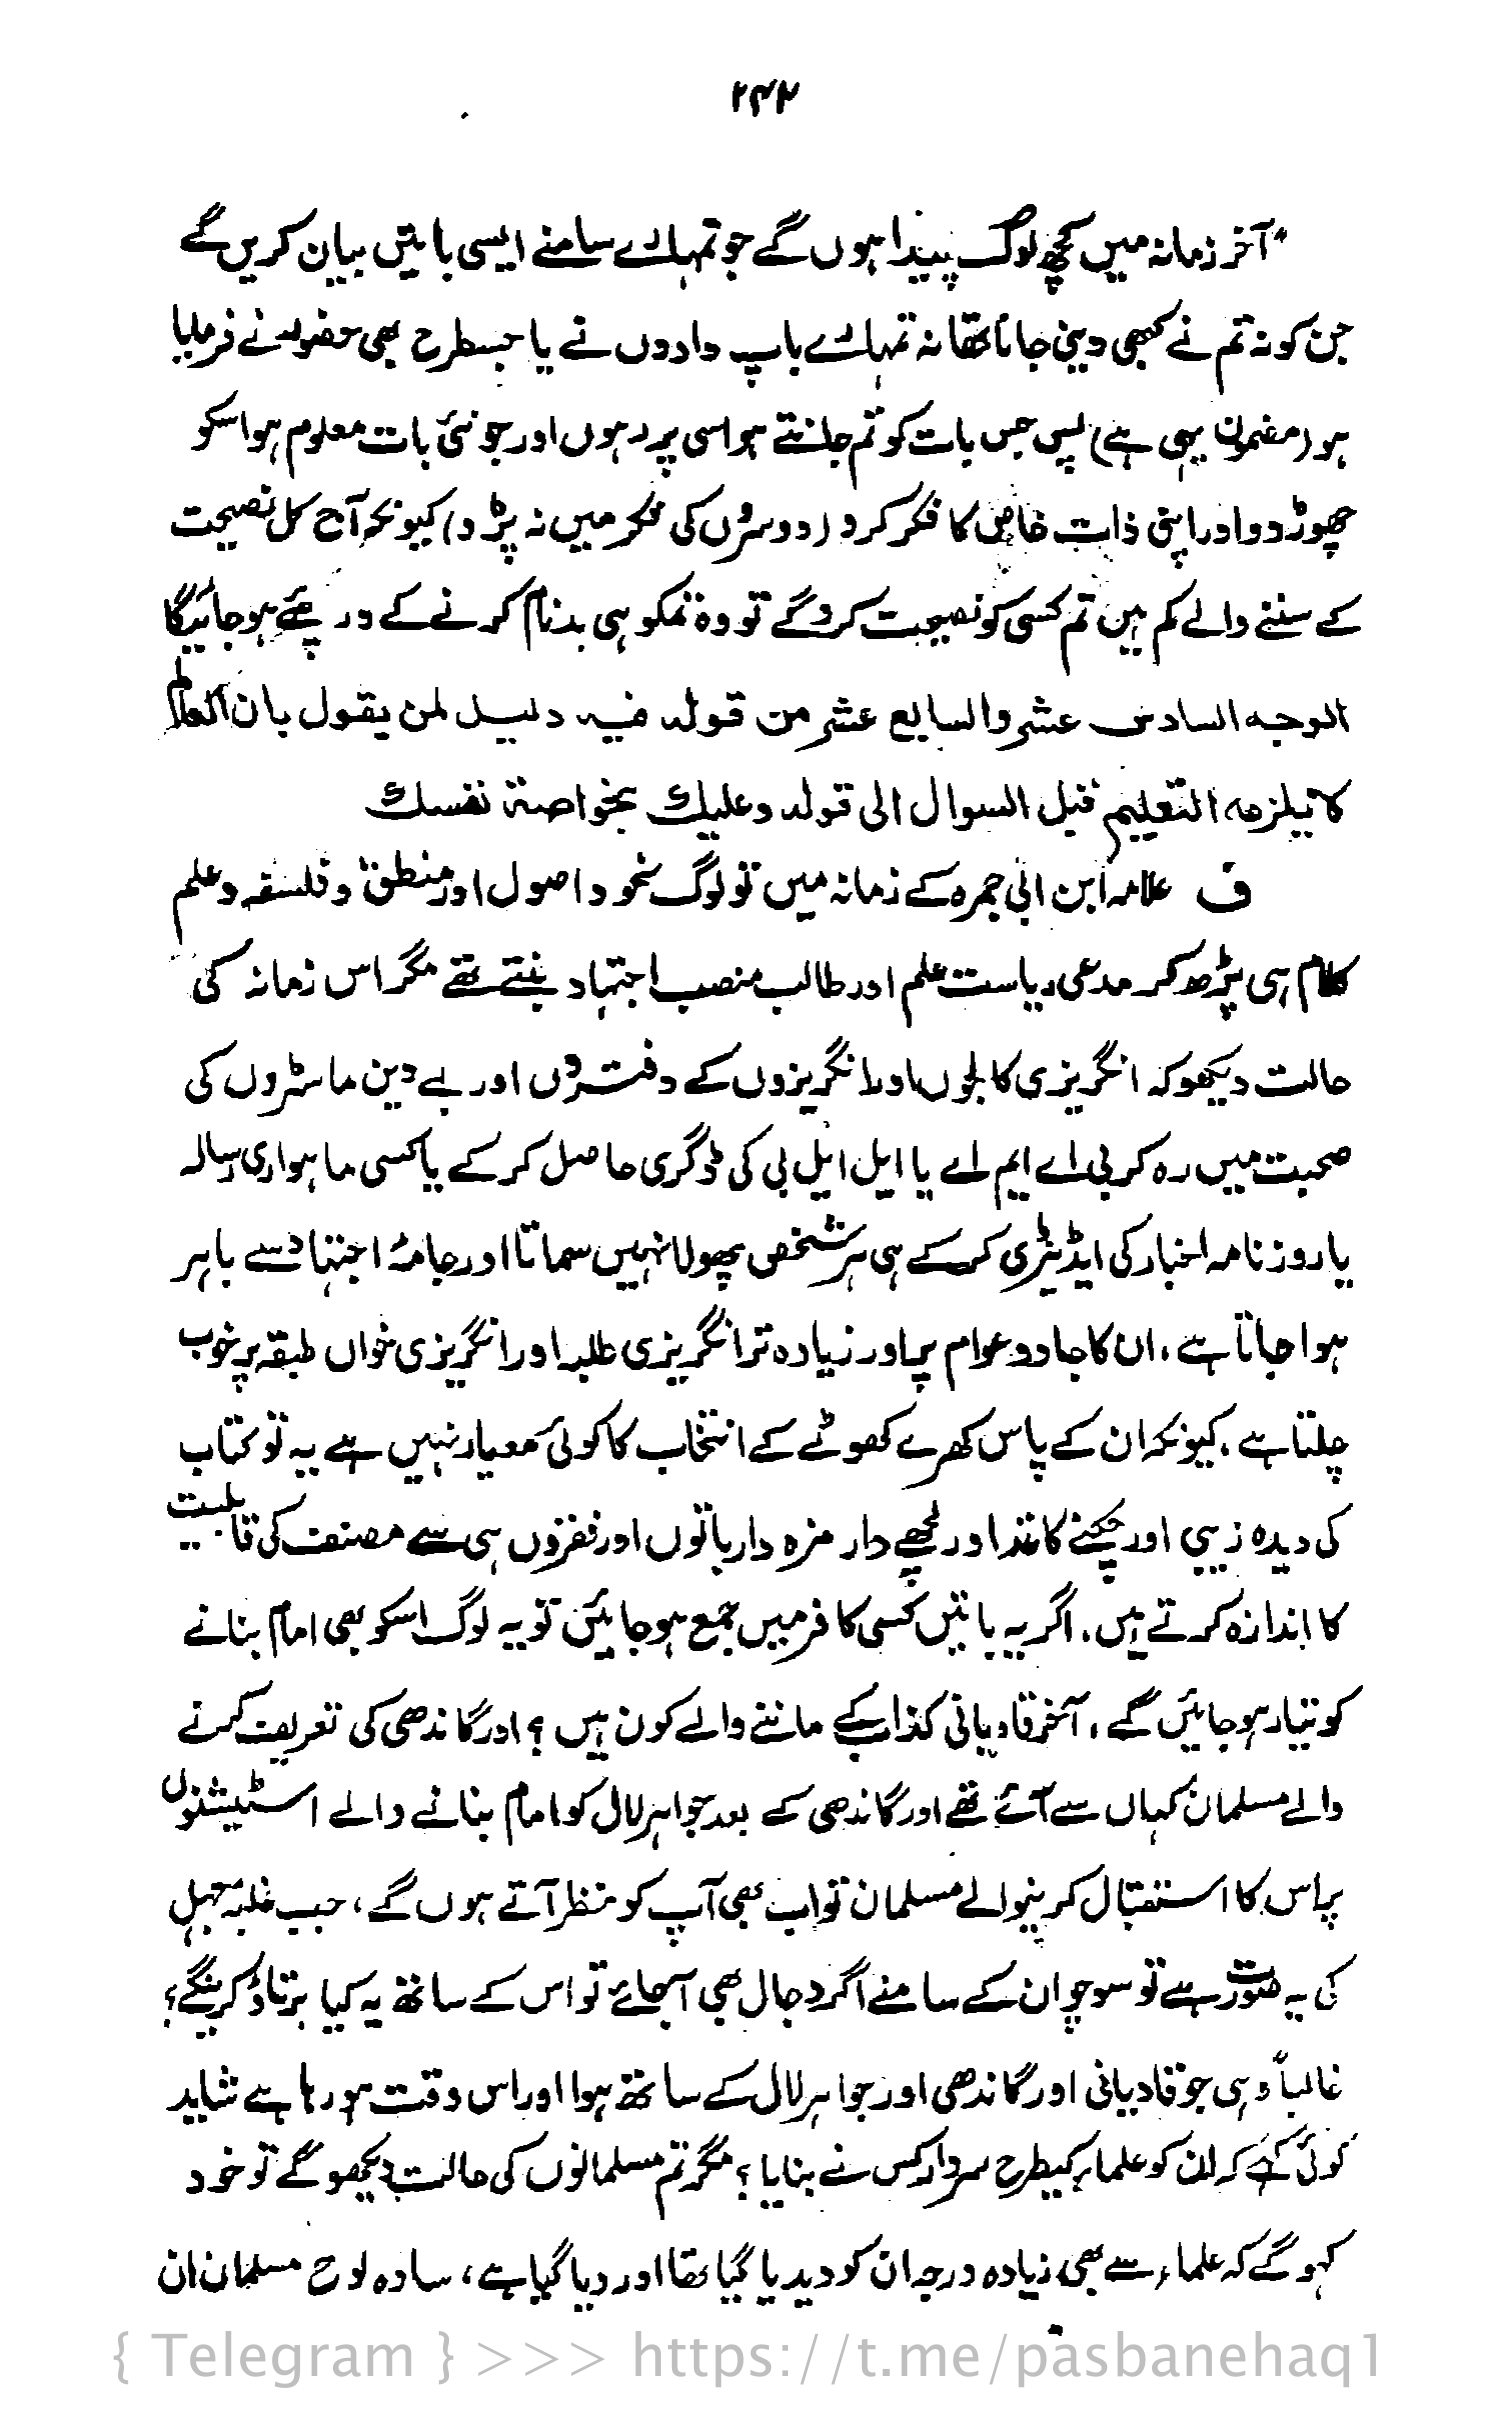 ۲۴۲
”آخر زمانہ میں کچھ لوگ پیدا ہوں گے جو تمہارے سامنے ایسی باتیں بیان کریں گے
جن کو نہ تم نے کبھی دینی جانا تھا نہ تمہارے باپ دادوں نے یا جسطرح بھی حضورؐ نے فرمایا
ہو (مضمون یہی ہے) پس جس بات کو تم جانتے ہو اسی پر رہوں اور جو نئی بات معلوم ہو اسکو
چھوڑ دو اور اپنی ذات خاص کا فکر کرو (دوسروں کی فکر میں نہ پڑو) کیونکہ آج کل نصیحت
کے سننے والے کم ہیں تم کسی کو نصیحت کروگے تو وہ تمکو ہی بدنام کرنے کے درپئے ہوجائیگا
الوجہ السادس عشر والسابع عشر من قولہ فیہ دلیل لمن یقول بان العالم
لا یلزمہ التعلیم قبل السوال الی قولہ وعلیك بخواصۃ نفسك
ف علامہ ابن ابی جمرہ کے زمانہ میں تو لوگ نحو و اصول اور منطق و فلسفہ و علم
کلام ہی پڑھ کر مدعی ریاست علم اور طالب منصب اجتہاد بنتے تھے مگر اس زمانہ کی
حالت دیکھو کہ انگریزی کالجوں اور انگریزوں کے دفتروں اور بے دین ماسٹروں کی
صحبت میں رہ کر بی اے ایم اے یا ایل ایل بی کی ڈگری حاصل کرکے یا کسی ماہواری رسالہ
یا روزنامہ اخبار کی ایڈیٹری کرکے ہی ہر شخص پھولا نہیں سماتا اور جامۂ اجتہاد سے باہر
ہوا جاتا ہے، ان کا جادو عوام پر اور زیادہ تر انگریزی طلبہ اور انگریزی خواں طبقہ پر خوب
چلتا ہے، کیونکہ ان کے پاس کھرے کھوٹے کے انتخاب کا کوئی معیار نہیں ہے یہ تو کتاب
کی دیدہ زیبی اور چکنے کاغذ اور لچھے دار مزہ دار باتوں اور فقروں ہی سے مصنف کی قابلیت
کا اندازہ کرتے ہیں، اگر یہ باتیں کسی کافر میں جمع ہوجائیں تو یہ لوگ اسکو بھی امام بنانے
کو تیار ہوجائیں گے، آخر قادیانی کذاب کے ماننے والے کون ہیں ؟ اور گاندھی کی تعریف کرنے
والے مسلمان کہاں سے آئے تھے اور گاندھی کے بعد جواہر لال کو امام بنانے والے اسٹیشنوں
پر اس کا استقبال کرینوالے مسلمان تو اب بھی آپ کو نظر آتے ہوں گے، جب غلبۂ جہل
کی یہ صورت ہے تو سوچو ان کے سامنے اگر دجال بھی آجائے تو اس کے ساتھ یہ کیا برتاؤ کرینگے؟
غالباً وہی جو قادیانی اور گاندھی اور جواہر لال کے ساتھ ہوا اور اس وقت ہو رہا ہے شاید
کوئی کہے کہ ان کو علماء کیطرح سردار کس نے بنایا ؟ مگر تم مسلمانوں کی حالت دیکھو گے تو خود
کہو گے کہ علماء سے بھی زیادہ درجہ ان کو دیدیا گیا تھا اور دیا گیا ہے، سادہ لوح مسلمان ان
{ Telegram } >>> https://t.me/pasbanehaq1